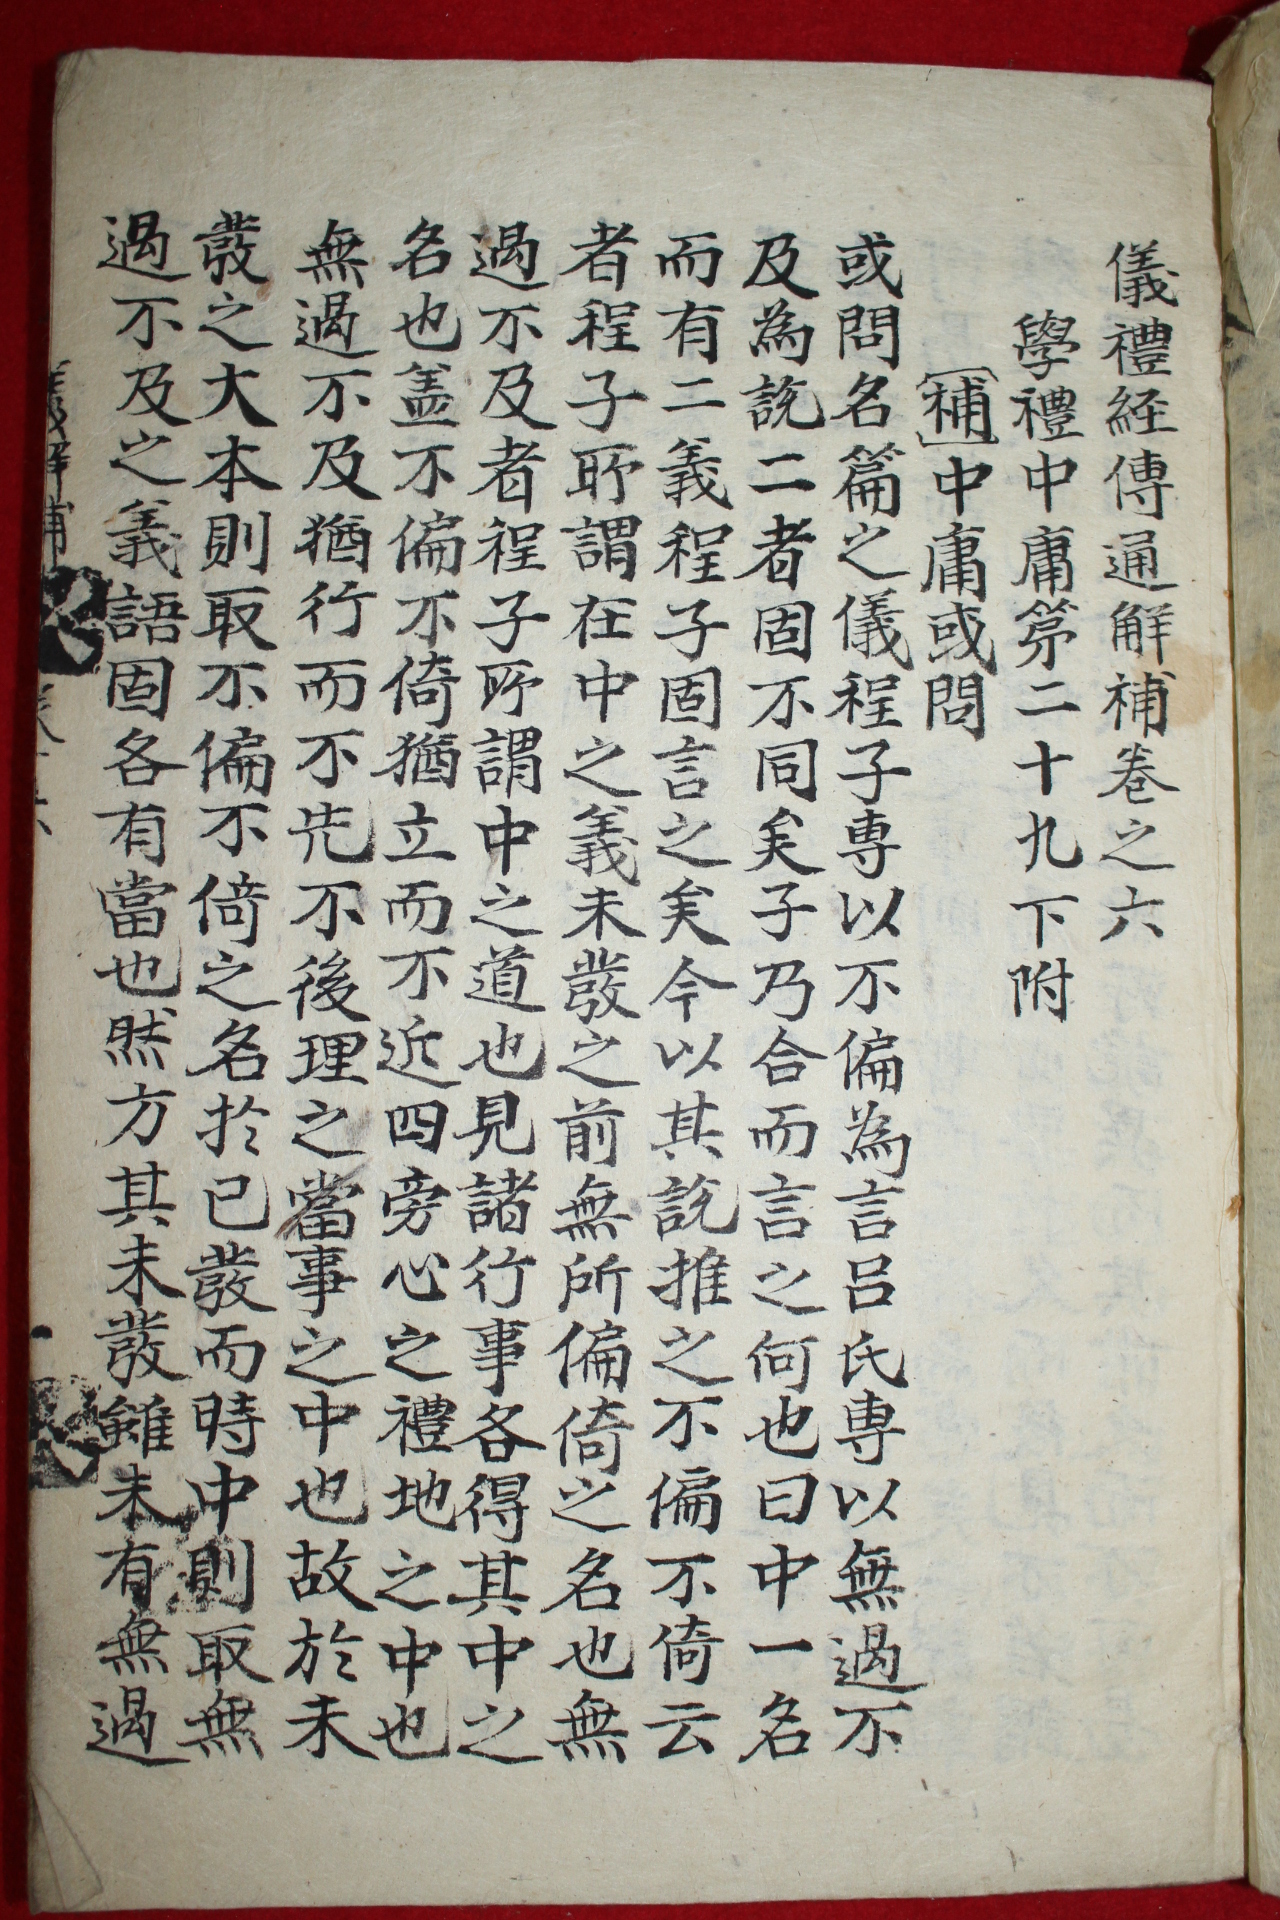 儀禮経傳通解補卷之六
學禮中庸苐二十九下附
[補]中庸或問
或問名篇之儀程子専以不偏為言呂氏専以無過不
及為説二者固不同矣子乃合而言之何也曰中一名
而有二義程子固言之矣今以其説推之不偏不倚云
者程子所謂在中之義未發之前無所偏倚之名也無
過不及者程子所謂中之道也見諸行事各得其中之
名也盖不偏不倚猶立而不近四旁心之禮地之中也
無過不及猶行而不先不後理之當事之中也故於未
發之大本則取不偏不倚之名於已發而時中則取無
過不及之義語固各有當也然方其未發雖未有無過